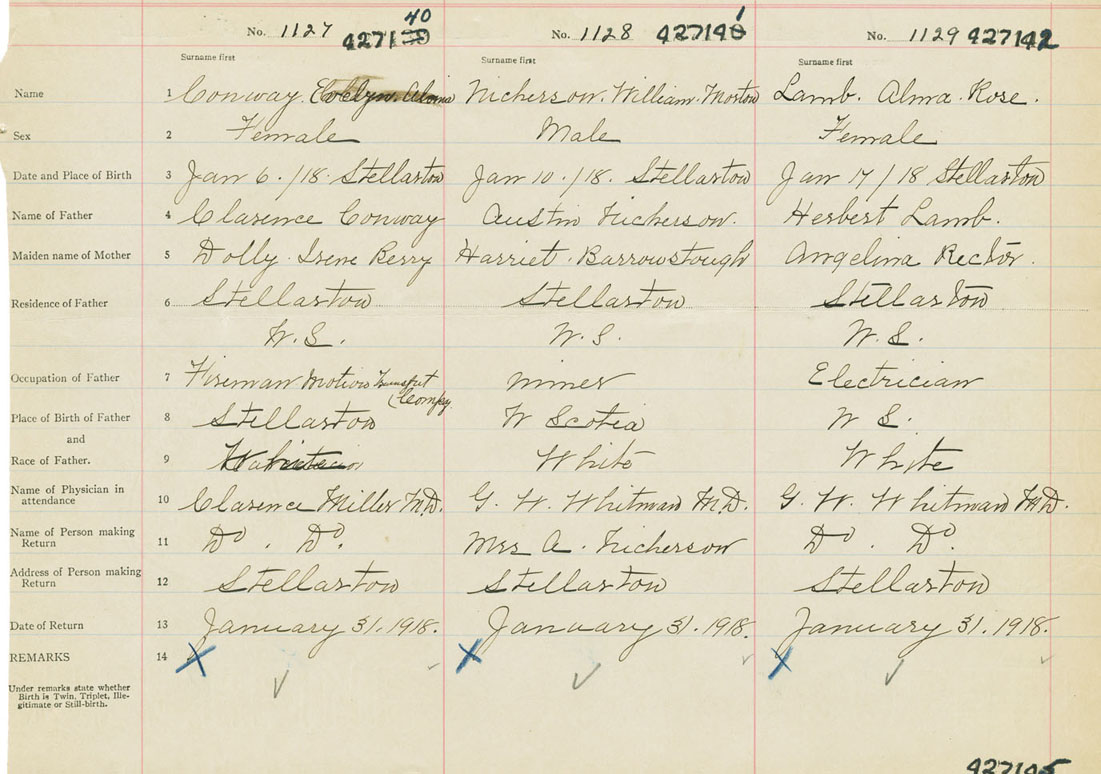 40 1
No. 1127 4271 No. 1128 427140 No. 1129 427142
Surname first Surname first Surname first
Name 1 Conway. Evelyn. Nickerson. William. Morton Lamb. Alma. Rose.
Sex 2 Female Male Female
Date and Place of Birth 3 Jan 6./18. Stellarton Jan 10./18. Stellarton Jan 17/18 Stellarton
Name of Father 4 Clarence Conway Austin Nickerson. Herbert Lamb.
Maiden name of Mother 5 Dolly Irene Berry Harriet. Barrowstough Angelina Rector.
Residence of Father 6 Stellarton Stellarton Stellarton
N.S. N.S. N.S.
Occupation of Father 7 Fireman Transport Miner Electrician
Compy.
Place of Birth of Father 8 Stellarton N Scotia N S.
and
Race of Father. 9 White White
Name of Physician in 10 Clarence Miller M.D. G. W. Whitman M.D. G. W. Whitman M.D.
attendance
Name of Person making 11 Do. Do. Mrs A. Nickerson Do. Do.
Return
Address of Person making 12 Stellarton Stellarton Stellarton
Return
Date of Return 13 January 31. 1918. January 31. 1918. January 31. 1918.
REMARKS 14
Under remarks state whether
Birth is Twin, Triplet, Ille-
gitimate or Still-birth.
427145